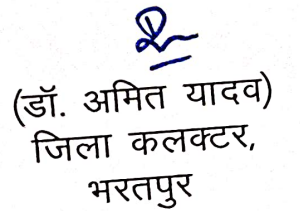 (डॉ. अमित यादव)
जिला कलक्टर,
भरतपुर